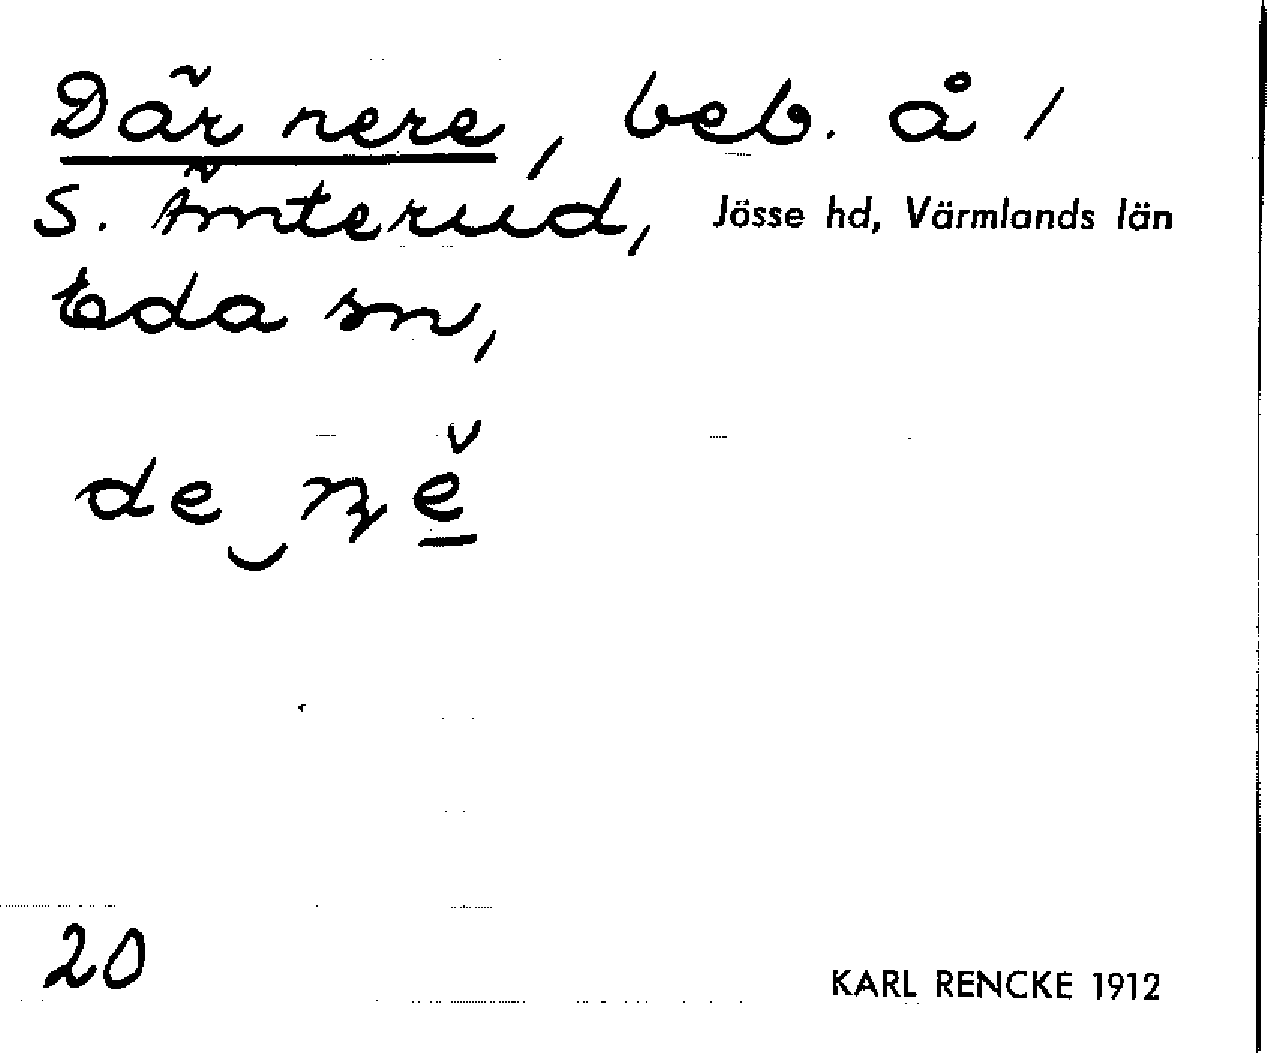 Där nere, beb. å /
S. Ämterud, Jösse hd, Värmlands län
Eda sn,
de‿nę ě
20
KARL RENCKE 1912